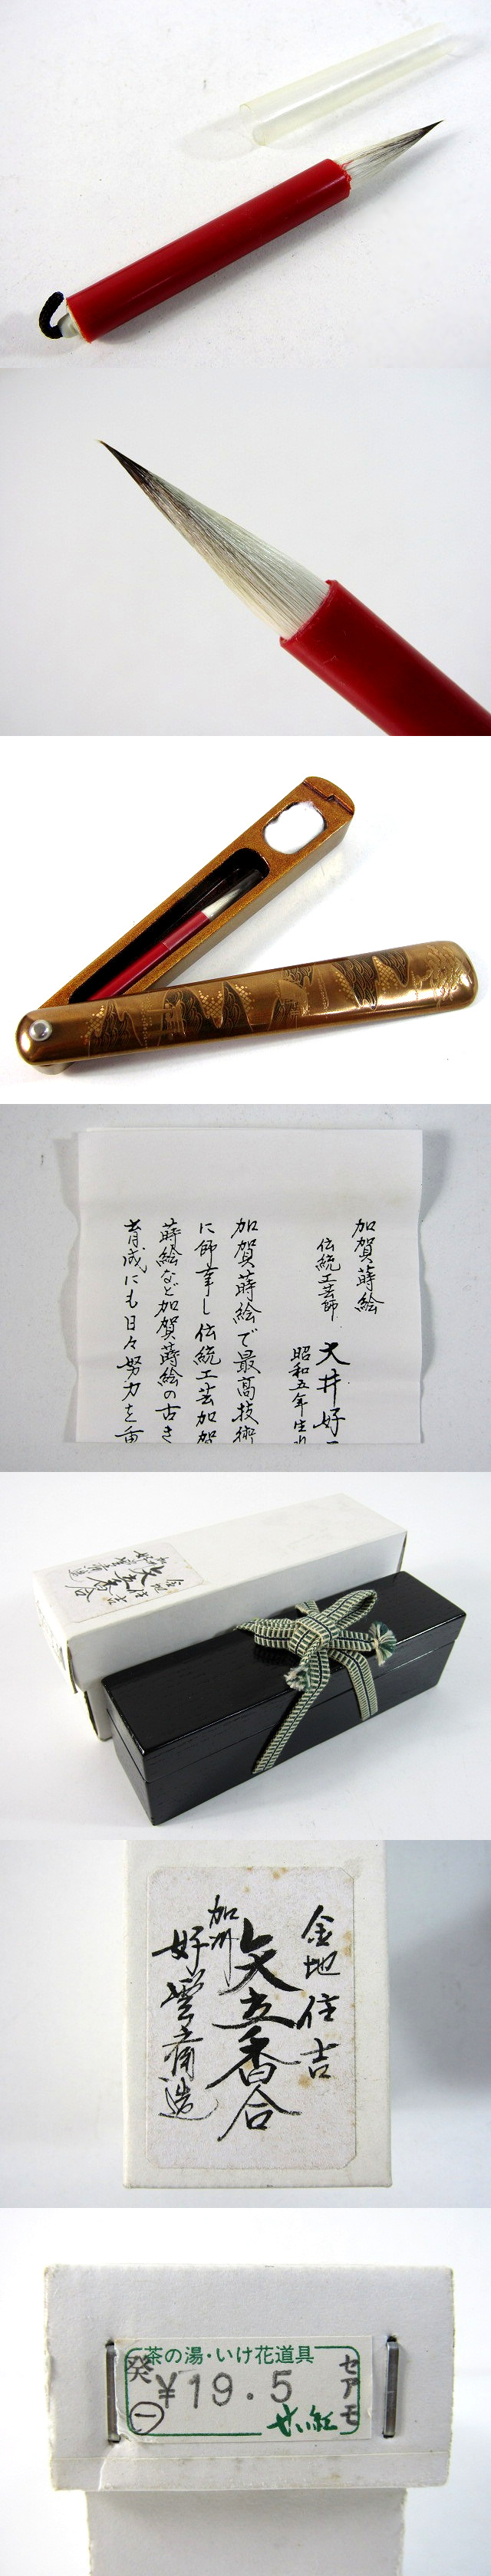 加賀蒔絵
伝統工芸師
大井好
昭和五年生
加賀蒔絵で最高技術
に師事し伝統工芸加賀
蒔絵など加賀蒔絵の古き
育成にも日々努力を重
金地住吉
矢立香合
加州
好雲斎造
金地住吉
矢立香合
加州
好雲斎造
茶の湯・いけ花道具
癸
¥19.5
一
セアモ